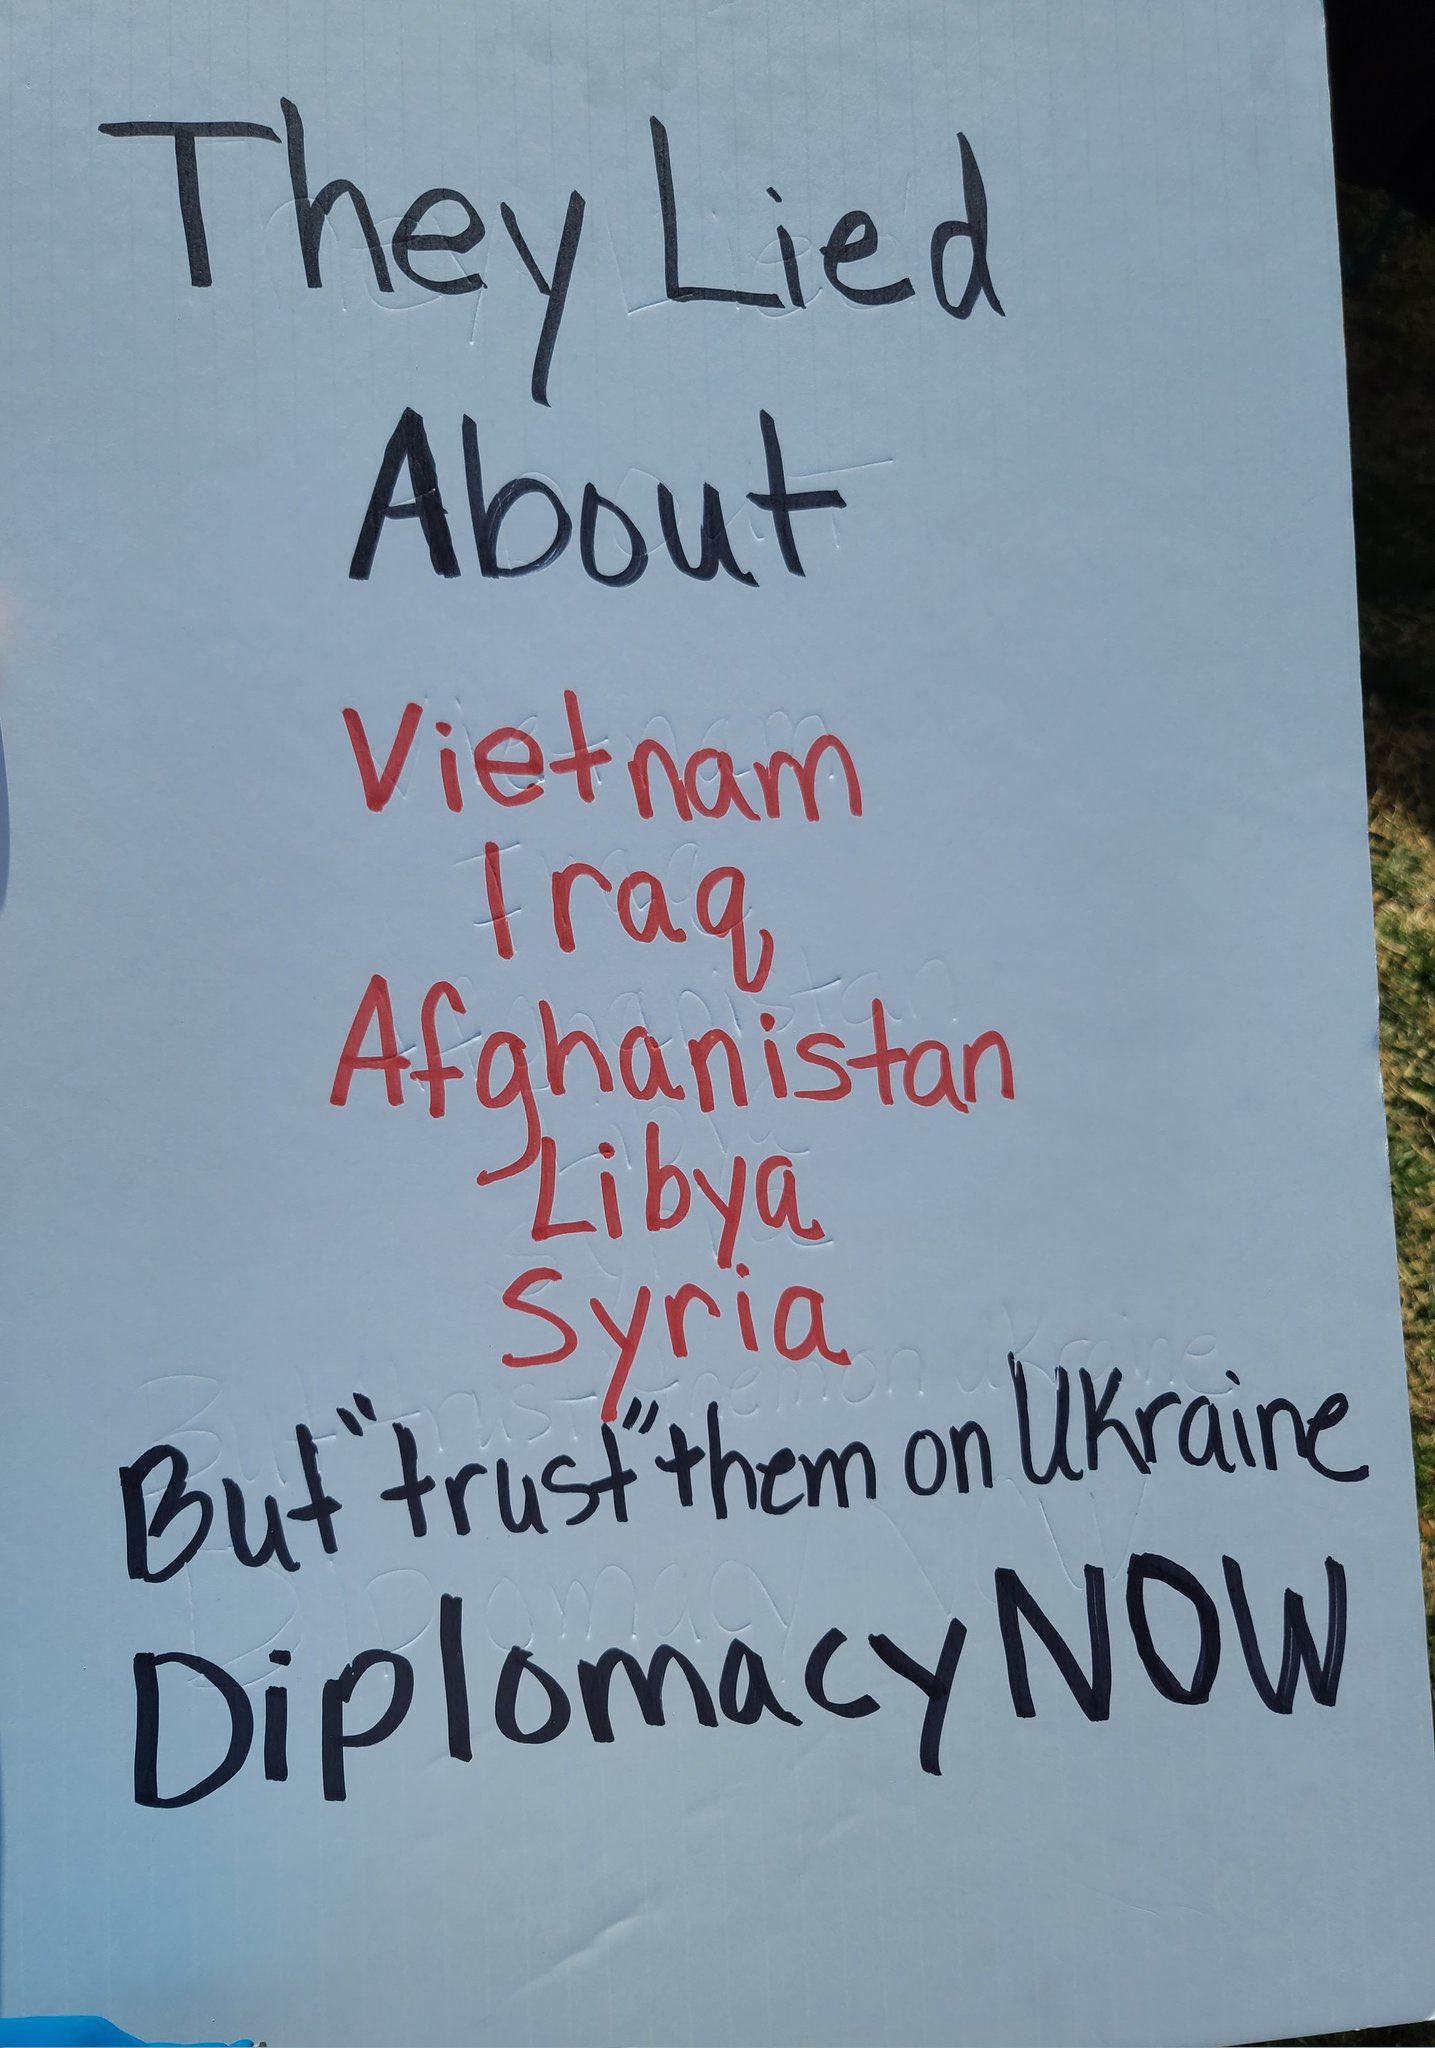 They Lied
About
Vietnam
Iraq
Afghanistan
Libya
Syria
But "trust" them on UKraine
Diplomacy NOW